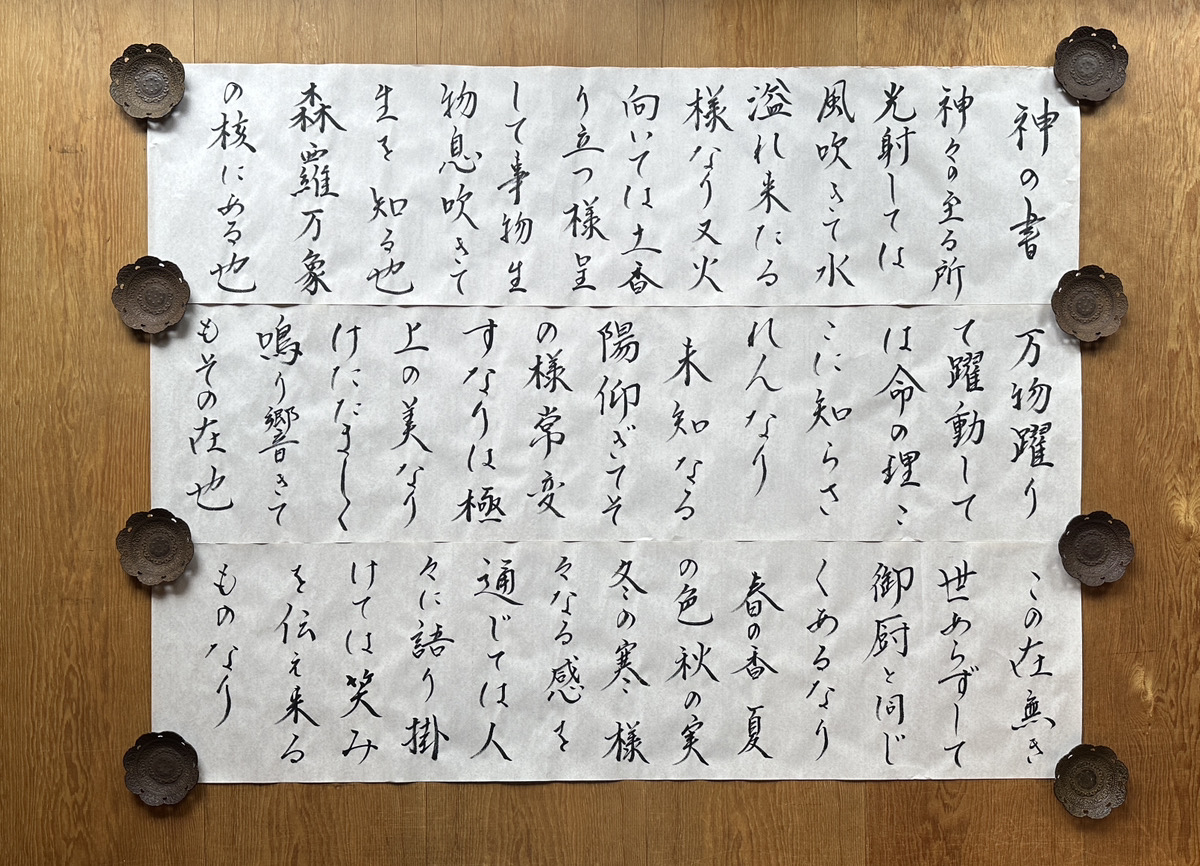 神の書
神々の至る所
光射しては
風吹きて水
溢れ来たる
様なり又火
向いては土香
り立つ様呈
して事物生
物息吹きて
生を知る也
森羅万象
の核にある也
万物躍り
て躍動して
は命の理こ
こに知らさ
れんなり
未知なる
陽仰ぎてそ
の様常変
すなりは極
上の美なり
けたたましく
鳴り響きて
もその在也
この在無き
世あらずして
御厨と同じ
くあるなり
春の香夏
の色秋の実
冬の寒さ様
々なる感を
通じては人
々に語り掛
けては笑み
を伝え来る
ものなり